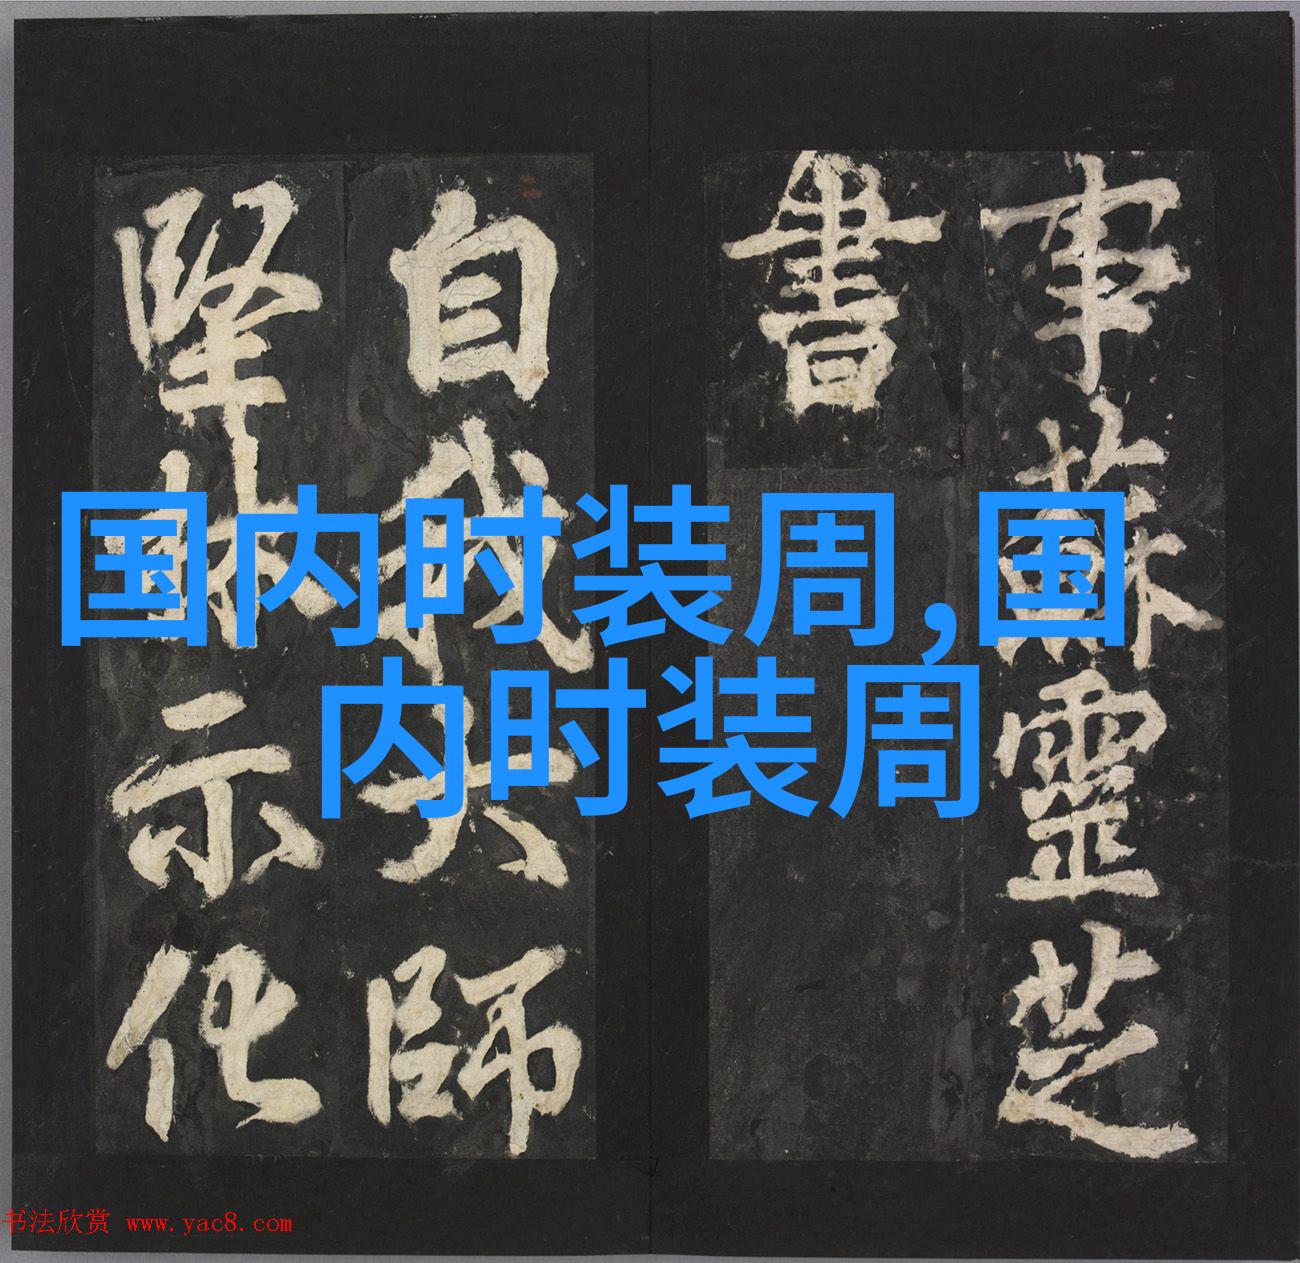 事蘇靈芝
書
自我大師
示化
国内时装周,国
内时装周
书法欣赏 www.yac8.com